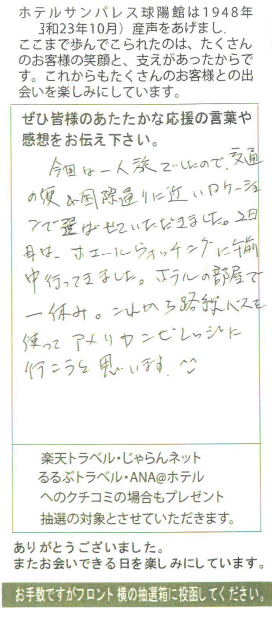 ホテルサンパレス球陽館は1948年
(昭和23年10月）産声をあげまし.
ここまで歩んでこられたのは、たくさん
のお客様の笑顔と、支えがあったからで
す。これからもたくさんのお客様との出
会いを楽しみにしています。
ぜひ皆様のあたたかな応援の言葉や
感想をお伝え下さい。
今回は一人旅でしたので、交通
の便や国際通りに近いロケーショ
ンで選ばせていただきました。2日
目は、ホエールウォッチングに午前
中行ってきました。ホテルの部屋で
一休み。これから路線バスを
使ってアメリカンビレッジに
行こうと思います。
楽天トラベル・じゃらんネット
るるぶトラベル・ANA@ホテル
へのクチコミの場合もプレゼント
抽選の対象とさせていただきます。
ありがとうございました。
またお会いできる日を楽しみにしています。
お手数ですがフロント横の抽選箱に投函してください。